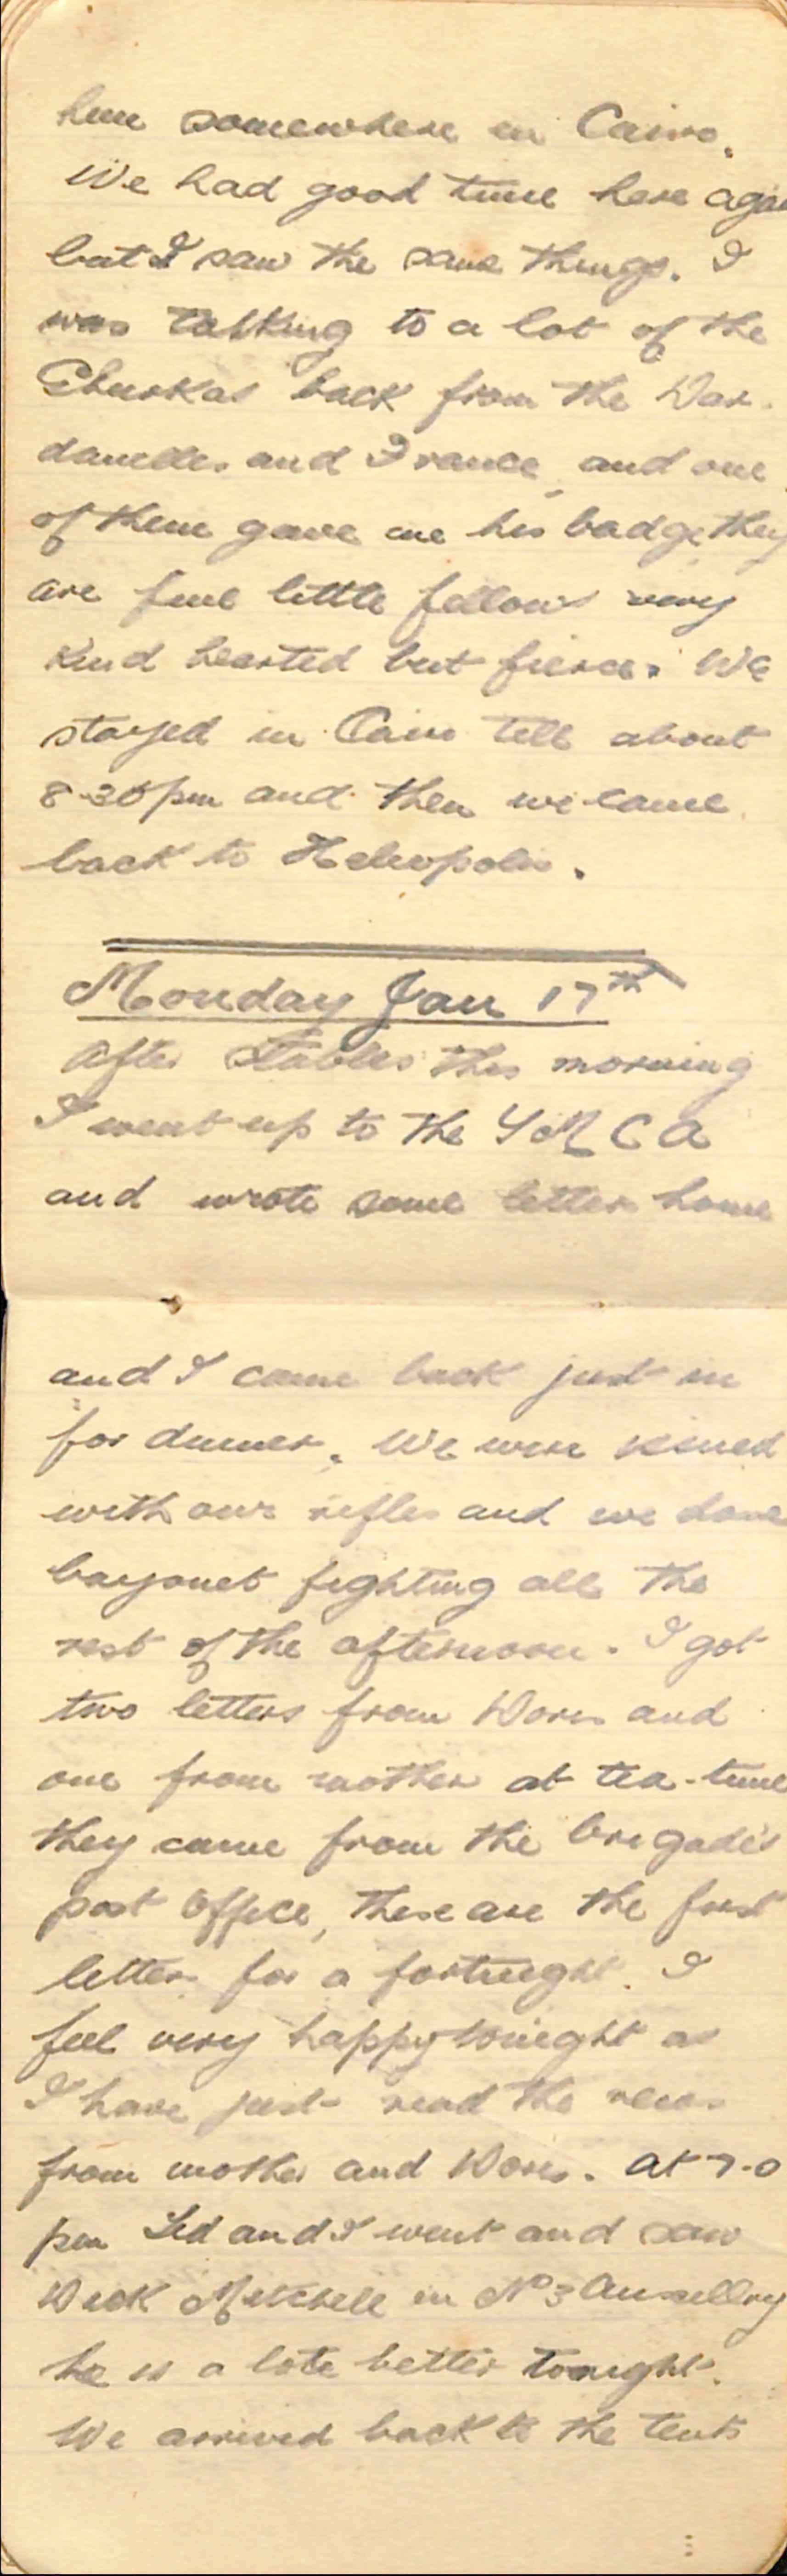 him somewhere in Cairo.
We had good time here again
but I saw the same things. I
was talking to a lot of the
Ghurkas back from the Dar-
danelles and France, and one
of them gave me his badge they
are fine little fellows very
kind hearted but fierce. We
stayed in Cairo till about
8-30 pm and then we came
back to Heliopolis.
Monday Jan 17th
After Stables this morning
I went up to the YMCA
and wrote some letters home
and I came back just in
for dinner. We were issued
with our rifles and we done
bayonet fighting all the
rest of the afternoon. I got
two letters from Doris and
one from mother at tea-time
they came from the brigades
post office, these are the first
letters for a fortnight. I
feel very happy tonight as
I have just read the news
from mother and Doris. At 7-0
pm Ted and I went and saw
Dick Mitchell in No 3 Auxillry
he is a lote better tonight.
We arrived back to the tents